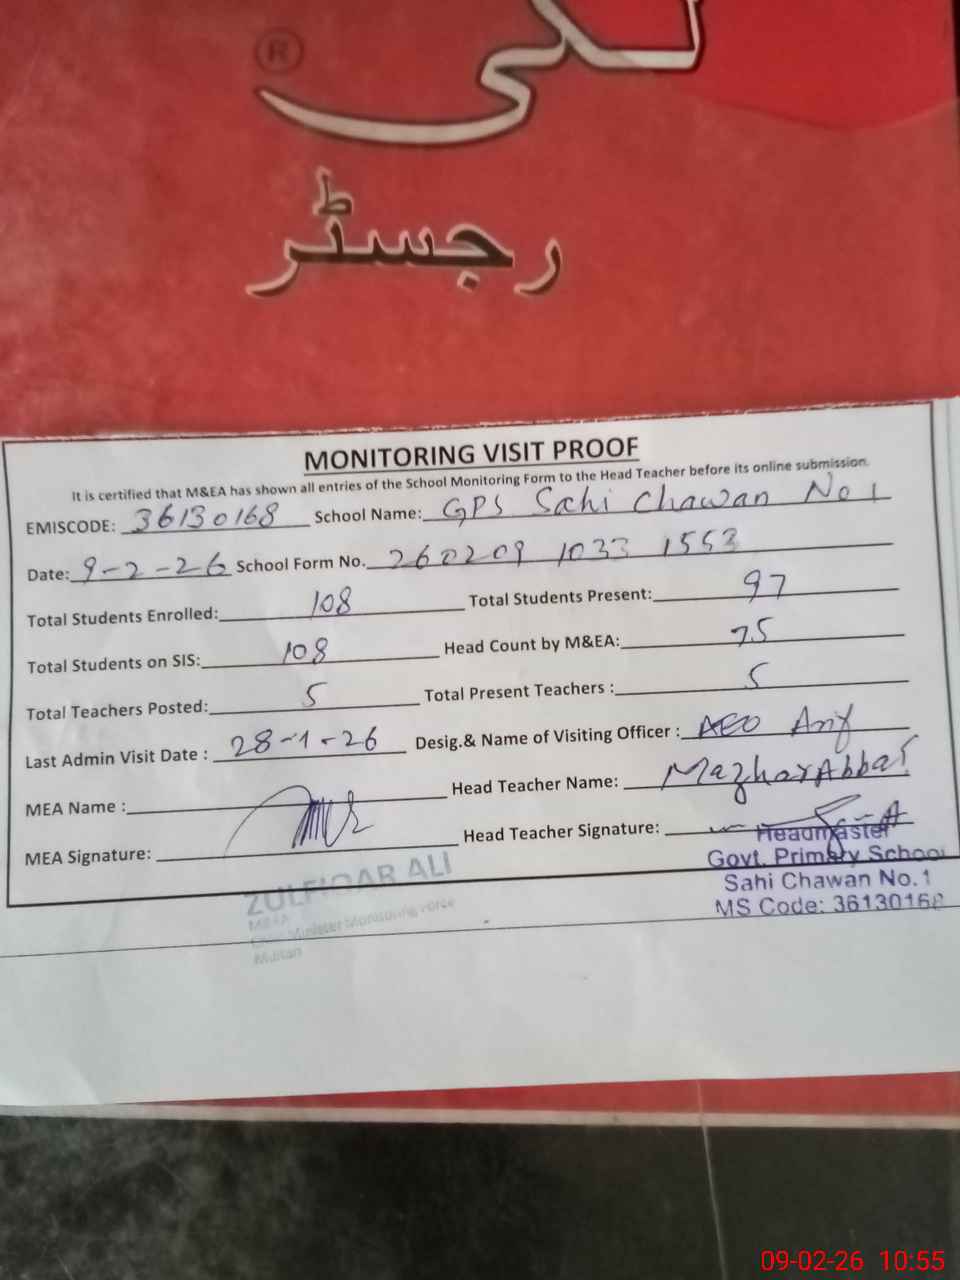 ®
رجسٹر
MONITORING VISIT PROOF
It is certified that M&EA has shown all entries of the School Monitoring Form to the Head Teacher before its online submission.
EMISCODE: 36130168 School Name: GPS Sahi Chawan No 1
Date: 9-2-26 School Form No. 260209 1033 1553
Total Students Enrolled: 108 Total Students Present: 97
Total Students on SIS: 108 Head Count by M&EA: 75
Total Teachers Posted: 5 Total Present Teachers : 5
Last Admin Visit Date : 28-1-26 Desig.& Name of Visiting Officer : AEO Arif
MEA Name : Head Teacher Name: Mazhar Abbas
MEA Signature: Head Teacher Signature:
Headmaster
Govt. Primary School
Sahi Chawan No.1
MS Code: 36130168
ZULFIQAR ALI
MEA
Chief Minister Monitoring Force
Multan
09-02-26 10:55